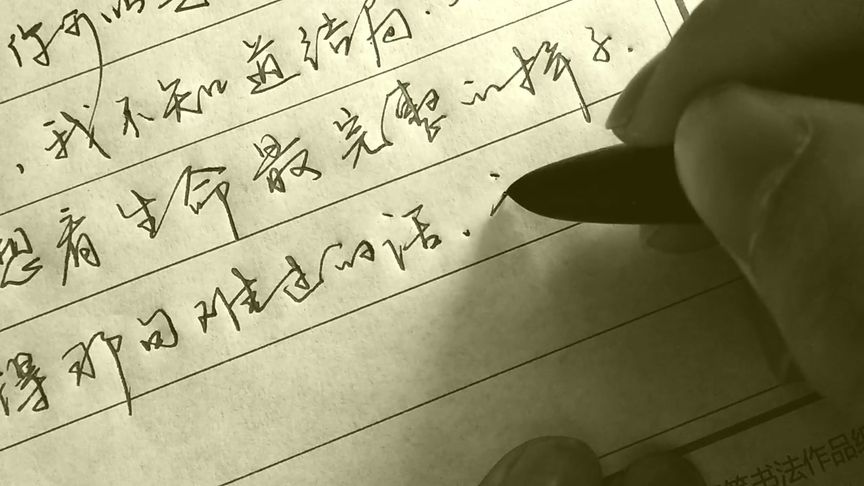 我不知道结局.
想看生命最完整的样子.
得那句难过的话.
笔书法作品纸